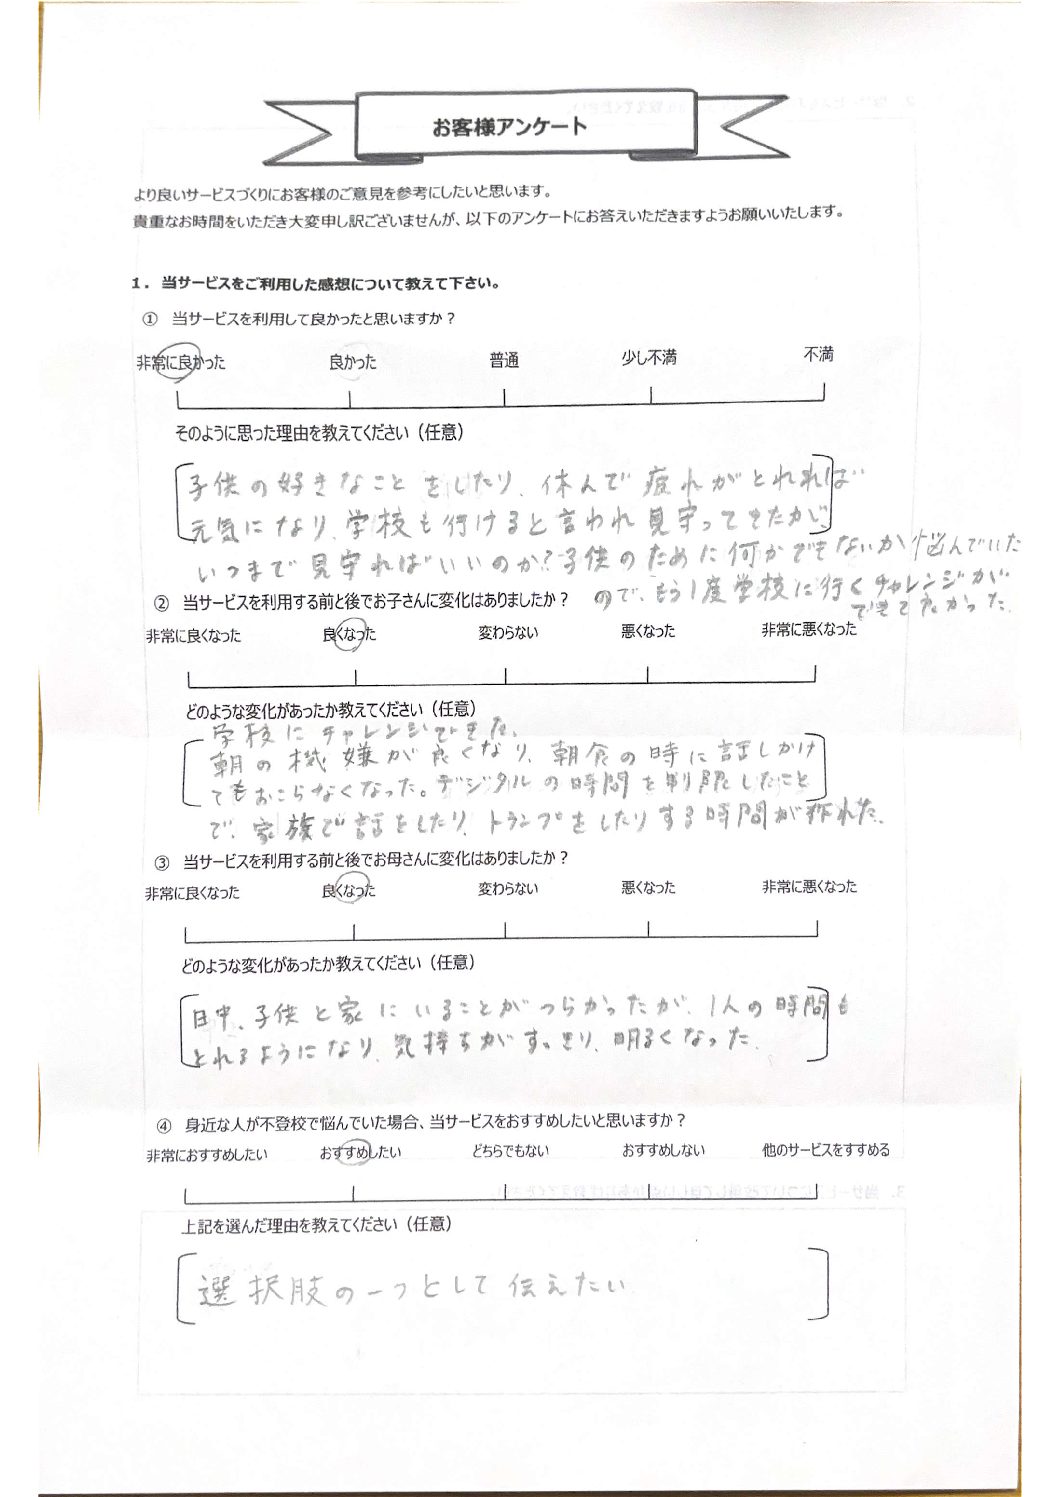 お客様アンケート
より良いサービスづくりにお客様のご意見を参考にしたいと思います。
貴重なお時間をいただき大変申し訳ございませんが、以下のアンケートにお答えいただきますようお願いいたします。
１．当サービスをご利用した感想について教えて下さい。
① 当サービスを利用して良かったと思いますか？
非常に良かった 良かった 普通 少し不満 不満
そのように思った理由を教えてください（任意）
子供の好きなことをしたり、休んで疲れがとれれば
元気になり、学校も行けると言われ見守ってきたが、
いつまで見守ればいいのか？子供のために何かできないか悩んでいた
ので、もう1度学校に行くチャレンジが
できて良かった。
② 当サービスを利用する前と後でお子さんに変化はありましたか？
非常に良くなった 良くなった 変わらない 悪くなった 非常に悪くなった
どのような変化があったか教えてください（任意）
学校にチャレンジできた。
朝の機嫌が良くなり、朝食の時に話しかけ
てもおこらなくなった。デジタルの時間を制限したこと
で、家族で話をしたり、トランプをしたりする時間が作れた。
③ 当サービスを利用する前と後でお母さんに変化はありましたか？
非常に良くなった 良くなった 変わらない 悪くなった 非常に悪くなった
どのような変化があったか教えてください（任意）
日中、子供と家にいることがつらかったが、1人の時間も
とれるようになり、気持ちがすっきり、明るくなった。
④ 身近な人が不登校で悩んでいた場合、当サービスをおすすめしたいと思いますか？
非常におすすめしたい おすすめしたい どちらでもない おすすめしない 他のサービスをすすめる
上記を選んだ理由を教えてください（任意）
選択肢の一つとして伝えたい